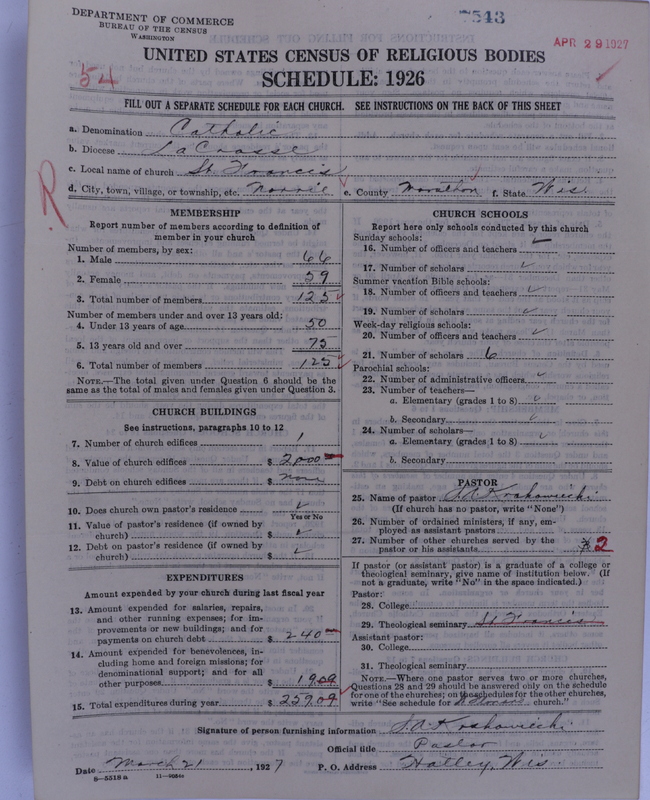 DEPARTMENT OF COMMERCE
BUREAU OF THE CENSUS
WASHINGTON
7543
APR 29 1927
54
UNITED STATES CENSUS OF RELIGIOUS BODIES
SCHEDULE: 1926
FILL OUT A SEPARATE SCHEDULE FOR EACH CHURCH. SEE INSTRUCTIONS ON THE BACK OF THIS SHEET
a. Denomination Catholic
b. Diocese LaCrosse
c. Local name of church St Francis
R
d. City, town, village, or township, etc. Norrie e. County Marathon f. State Wis.
MEMBERSHIP
Report number of members according to definition of
member in your church
Number of members, by sex:
1. Male 66
2. Female 59
3. Total number of members 125
Number of members under and over 13 years old:
4. Under 13 years of age 50
5. 13 years old and over 75
6. Total number of members 125
NOTE.—The total given under Question 6 should be the
same as the total of males and females given under Question 3.
CHURCH BUILDINGS
See instructions, paragraphs 10 to 12
7. Number of church edifices 1
8. Value of church edifices $ 2,000
9. Debt on church edifices $ none
10. Does church own pastor's residence ✓
Yes or No
11. Value of pastor's residence (if owned by
church) $ ✓
12. Debt on pastor's residence (if owned by
church) $ ✓
EXPENDITURES
Amount expended by your church during last fiscal year
13. Amount expended for salaries, repairs,
and other running expenses; for im-
provements or new buildings; and for
payments on church debt $ 240
14. Amount expended for benevolences, in-
cluding home and foreign missions; for
denominational support; and for all
other purposes $ 19.09
15. Total expenditures during year $ 259.09
CHURCH SCHOOLS
Report here only schools conducted by this church
Sunday schools:
16. Number of officers and teachers ✓
17. Number of scholars ✓
Summer vacation Bible schools:
18. Number of officers and teachers ✓
19. Number of scholars ✓
Week-day religious schools:
20. Number of officers and teachers ✓
21. Number of scholars 6
Parochial schools:
22. Number of administrative officers ✓
23. Number of teachers—
a. Elementary (grades 1 to 8) ✓
b. Secondary ✓
24. Number of scholars—
a. Elementary (grades 1 to 8) ✓
b. Secondary
PASTOR
25. Name of pastor
(If church has no pastor, write "None")
26. Number of ordained ministers, if any, em-
ployed as assistant pastors
27. Number of other churches served by the
pastor or his assistants 2
If pastor (or assistant pastor) is a graduate of a college or
theological seminary, give name of institution below. (If
not a graduate, write "No" in the space indicated.)
Pastor:
28. College
29. Theological seminary St Francis
Assistant pastor:
30. College
31. Theological seminary
NOTE.—Where one pastor serves two or more churches,
Questions 28 and 29 should be answered only on the schedule
for one of the churches; on the schedules for the other churches,
write "See schedule for church."
Signature of person furnishing information
Official title Pastor
Date March 21, 1927 P. O. Address Hatley, Wis.
8—5518a 11—9684a